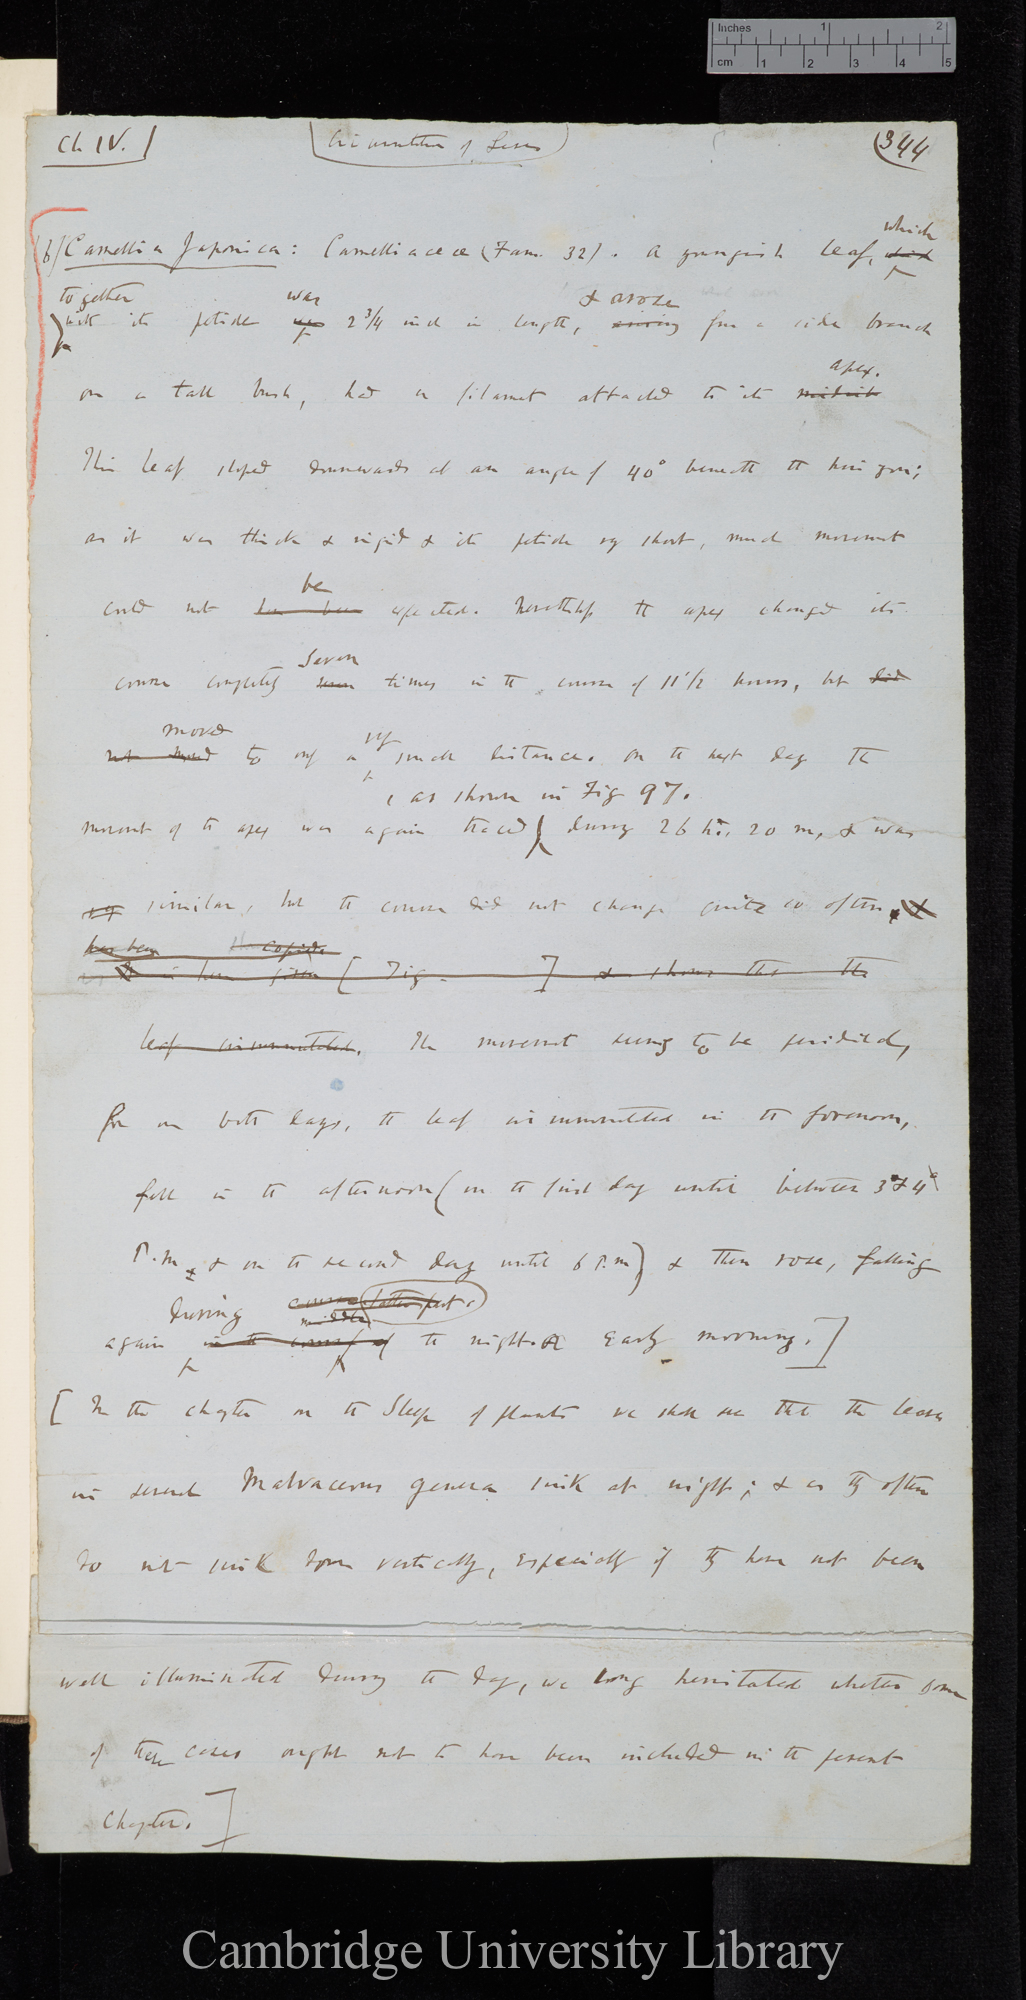 Inches 1 2
cm 1 2 3 4 5
Ch. IV.
Circumnutation of Leaves
344
which
(b) Camellia Japonica: Camelliaceæ (Fam. 32). A youngish leaf, did
together was & arose
with its petiole was 2 3/4 inch in length, arising from a side branch
apex.
on a tall bush, had a filament attached to its midrib
This leaf sloped downwards at an angle of 40° beneath the horizon;
as it was thick & rigid & its petiole very short, much movement
be
could not have been expected. Nevertheless the apex changed its
Seven
course completely seven times in the course of 11 1/2 hours, but did
moved very
not moved to only a small distance. On the next day the
, as shown in Fig 97.
movement of the apex was again traced during 26 hrs. 20 m, & was
very similar, but the course did not change quite so often, &
has been copied
is here given [Fig. ] & shows that the
leaf circumnutated. The movement seems to be periodical,
for on both days, the leaf circumnutated in the forenoon,
fell in the afternoon (on the first day until between 3 & 4
P.m. & on the second day until 6 P.m) & then rose, falling
During course latter part.
middle
again in the course of the night or early morning.]
[In the chapter on the Sleep of plants we shall see that the leaves
in several Malvaceous genera sink at night; & as they often
do not sink down vertically, especially if they have not been
well illuminated during the day, we long hesitated whether some
of these cases ought not to have been included in the present
Chapter.]
Cambridge University Library